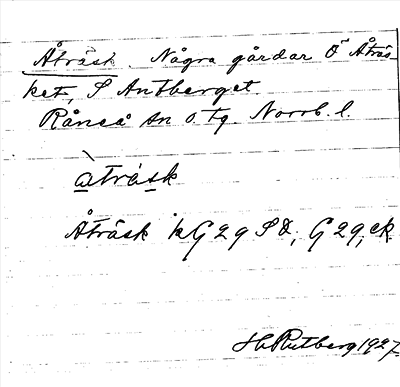 Åträsk. Några gårdar Ö Åträs-
ket, S Antberget.
Råneå sn o tg. Norrb. l.
a̱trȧs̱k
Åträsk kG29 SO, G29, ek.
H. Rutberg 1927